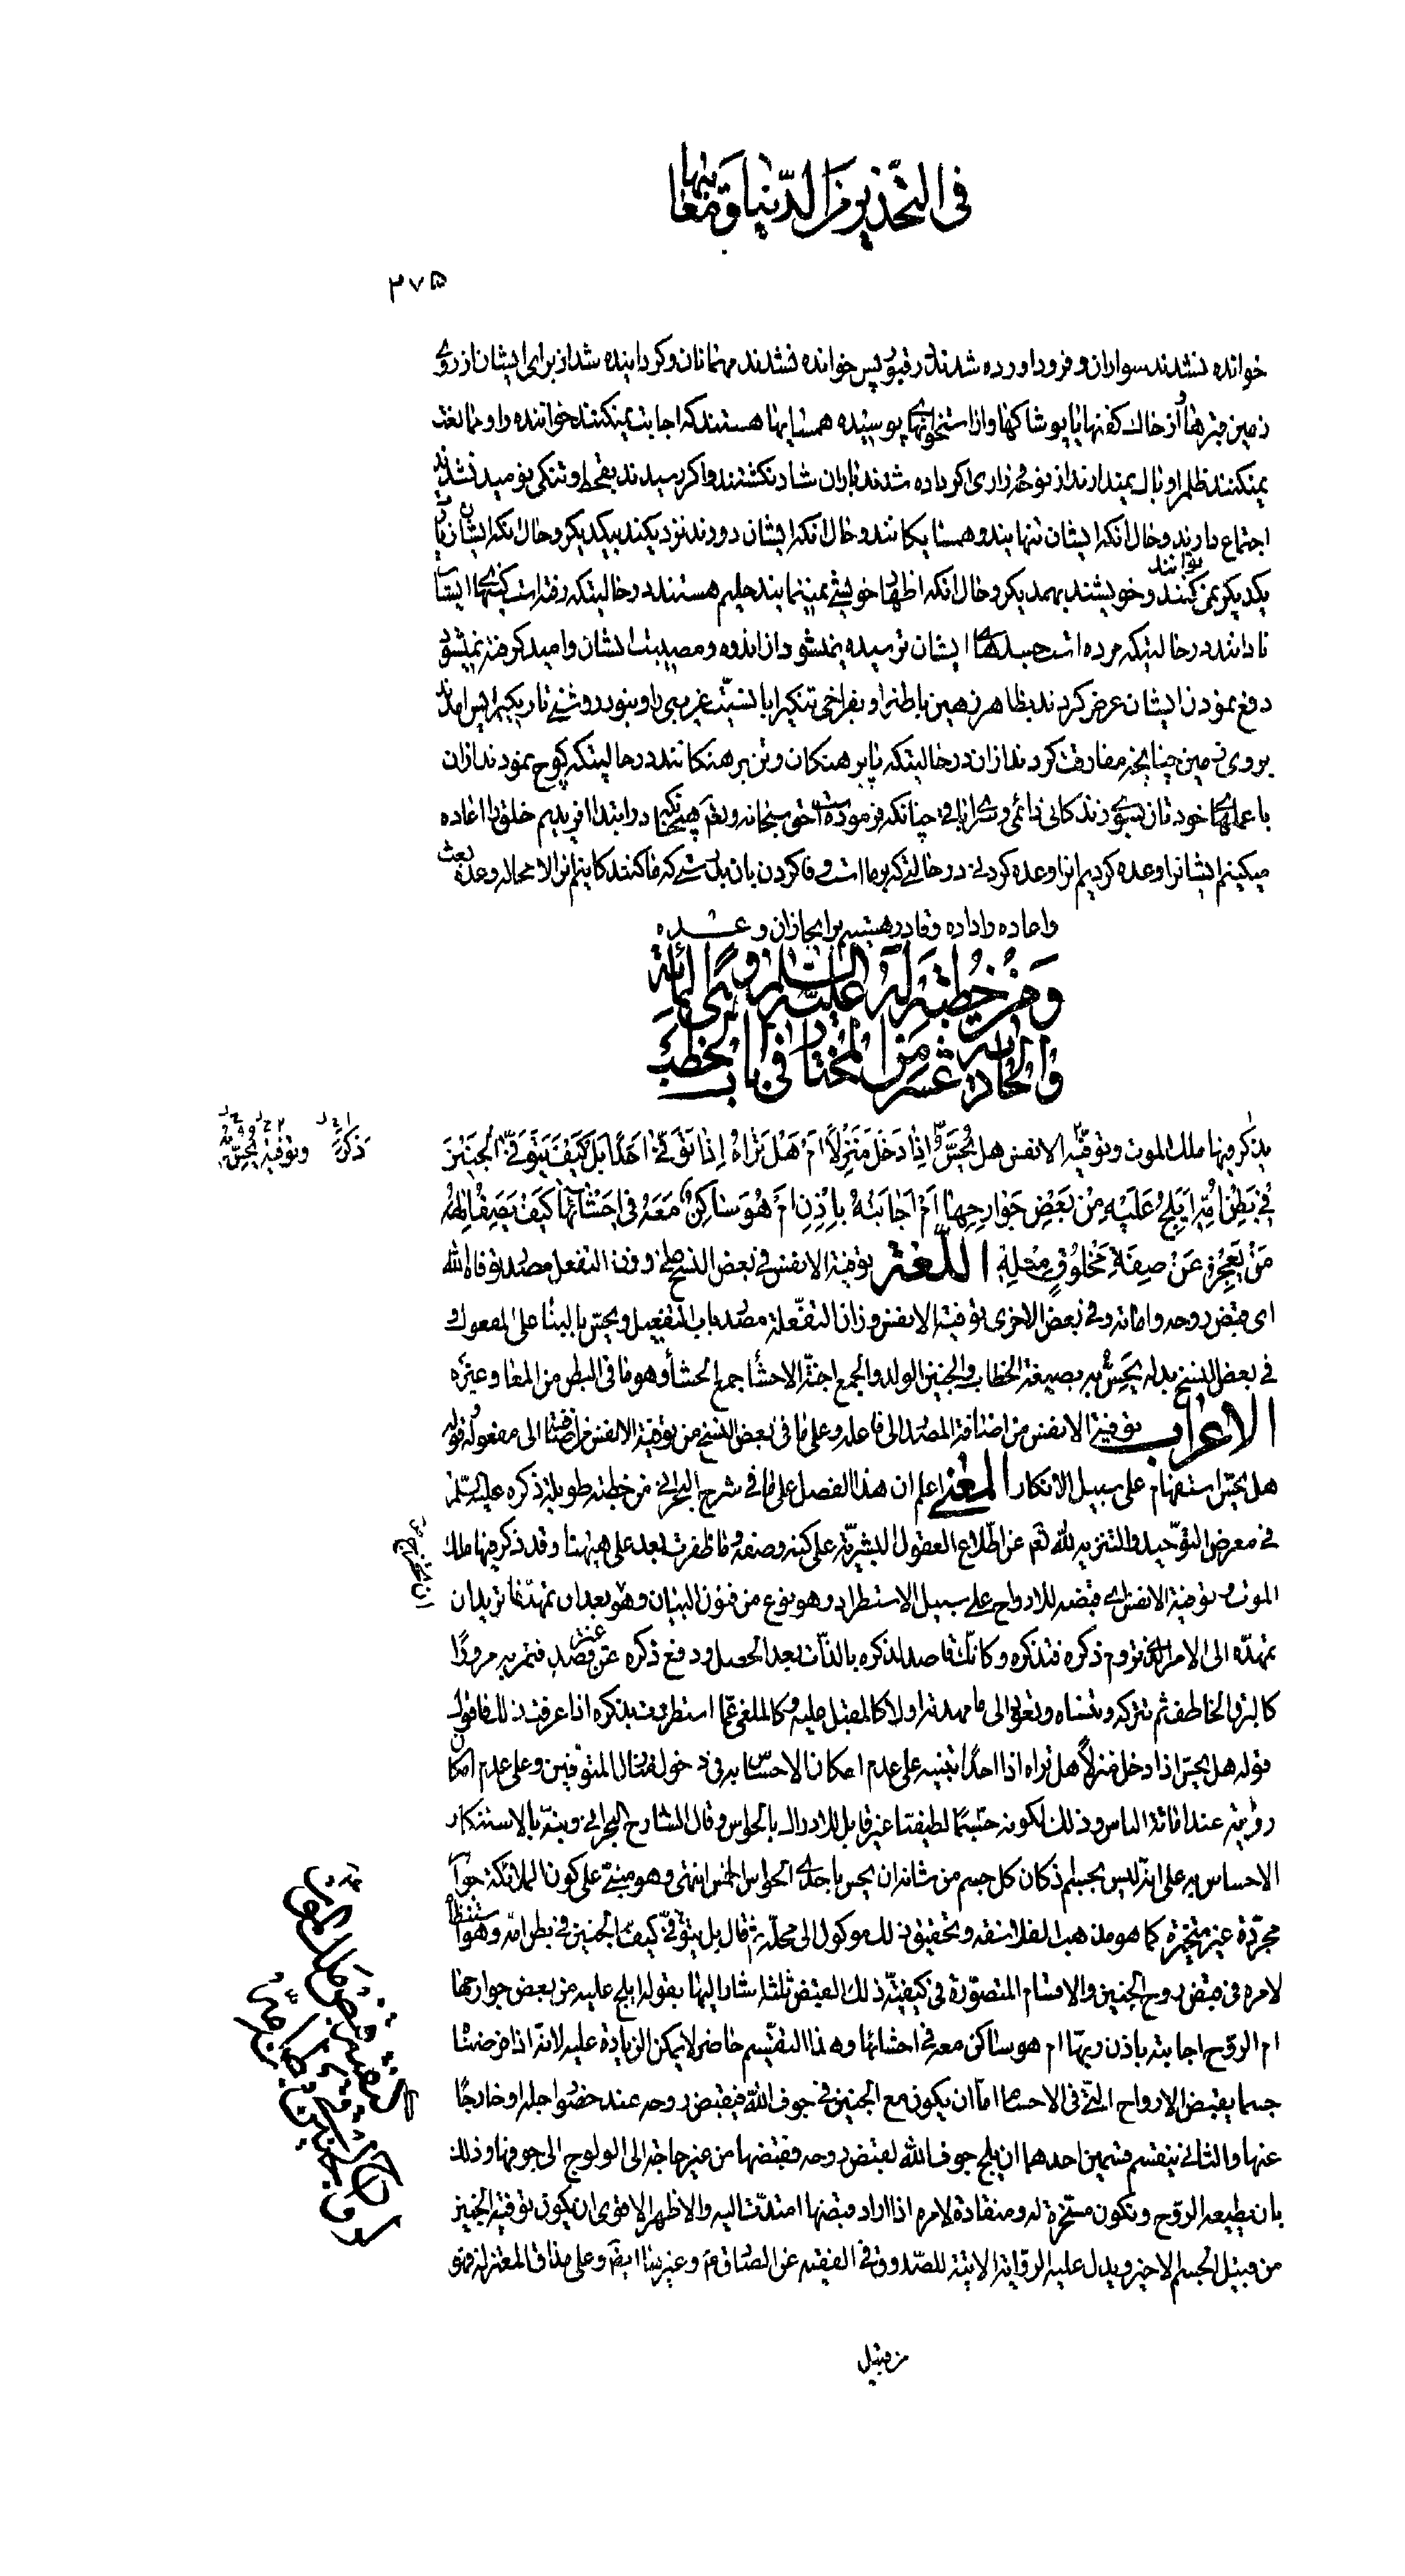 فی التحذیر من الدنیا و معایبها
۳۷۵
خوانده نشدند سواران و فرود اورده شدند در قبور پس خوانده نشدند مهمانان و کردانیده شد از برای ایشان از روی
زمین قبرها و از خاك کفنها یا پوشاکها و از استخوانهای پوسیده همسایها هستند که اجابت نمیکنند خواننده را و ممانعت
نمیکنند ظلم را و باك نمیدارند از نوحه و زاری اکر داده شدند باران شاد نکشتند و اکر رسیدند بقحط و تنکی نومید نشدند
اجتماع دارند و حال آنکه ایشان تنهایند و همسایکانند و حال آنکه ایشان دورند نزدیکند بیکدیکر و حال آنکه ایشان زیارت
یکدیکر نمی کنند و خویشند بهمدیکر و حال آنکه اظهار خویشی نمینمایند حلیم هستند در حالیتکه رفته است کینهای ایشان
نادانند در حالیتکه مرده است حسدهای ایشان ترسیده نمیشود از اندوه و مصیبت ایشان و امید کرفته نمیشود
دفع نمودن ایشان عوض کردند بظاهر زمین باطن را و بفراخی تنکی را باٌنسیت غریبی را و بنور و روشنی تاریکی را پس امدند
بروی زمین چنانچه مفارقت کردند از ان در حالیتکه پا برهنکان و تن برهنکانند در حالیتکه کوچ نمودند از ان
با عملهای خودتان بسوی زندکانی دائمی و سرای باقی چنانکه فرموده است حق سبحانه و تعم همچنانکه در ابتدا افریدیم خلق را اعاده
میکنیم ایشانرا وعده کردیم انرا وعده کردنی در حالتی که بر ما است وفا کردن بان بدرستی که ما کنندکانیم انرا لا محاله وعده بعث
و اعاده را داده و قادر هستیم بر انجاز ان وعده
وَمِنْ خُطْبَةٍ لَهُ عَلَیْهِ السَّلامُ وَهِیَ الْمِأَةُ
وَالْحادِیَةُ عَشَرَ مِنَ الْمُخْتارِ فی بابِ الْخُطَبِ
یذکر فیها ملك الموت وتوفّیه الانفس هل یُحَسُّ اِذا دَخَلَ مَنْزِلاً اَمْ هَلْ تَراهُ اِذا تَوَفّی اَحَداً بَلْ کَیْفَ یَتَوَفّی الْجَنینَ
فی بَطْنِ اُمِّهِ اَیَلِجُ عَلَیْهِ مِنْ بَعْضِ جَوارِحِها اَمْ اَجابَتْهُ بِاِذْنِ اَمْ هُوَ ساکِنٌ مَعَهُ فی اَحْشائِها کَیْفَ یَصِفُ اِلهَهُ
مَنْ یَعْجِزُ عَنْ صِفَةِ مَخْلُوقٍ مِثْلِهِ اللّغة توفیة الانفس فی بعض النسخ علی وزن التفعل مصدر توفاه الله
ای قبض روحه و اماته و فی بعض الاخری توفیة الانفس وزان التفعلة مصدر باب التفعیل و یحسّ بالبناء علی المفعول و
فی بعض النسخ بدله یحسّ به بصیغة الخطاب و الجنین الولد و الجمع اجنّة الاحشاء جمع الحشا و هو ما فی البطن من المعا و غیره
الاعراب توفیة الانفس من اضافة المصدر الی فاعله و علی ما فی بعض النسخ من توفیة الانفس فمن اضافته الی مفعوله قوله
هل یحسّ استفهام علی سبیل الانکار المعنی اعلم ان هذا الفصل علی ما فی شرح البحرانی من خطبة طویلة ذکره علیه السّلم
فی معرض التوحید و التنزیه لله تعم عن اطّلاع العقول البشریّة علی کنه وصفه و ما ظفرت بعد علی هیهنا و قد ذکر فیها ملك
الموت و توفیة الانفس ای قبضه للارواح علی سبیل الاستطراد و هو نوع من فنون البیان و هو بعد ان تمهّد فنا ترید ان
ان یخرج
تمهّده الی الامر الذی تروم ذکره فتذکره و کانّك قاصد لذکره بالذّات بعد الحصل و دفع ذکره عن قصد فتمر به مرورًا
کالبرق الخاطف ثم تترکه و تنساه و تعود الی ما مهدته اولا کالمقبل علیه و کالملغی عمّا استطردت بذکره اذا عرفت ذلك فاقول
قوله هل یحسّ اذا دخل منزلاً هل تراه اذا احدًا تنبیه علی عدم امکان الاحساس به فی دخوله منازل المتوفین و علی عدم امکان
رؤیته عند اماتة الناس و ذلك لکونه جسمًا لطیفا غیر قابل للادراك بالحواس و قال الشارح البحرانی و نبّه بالاستنکار
الاحساس به علی انه لیس بجسم اذ کان کل جسم من شانه ان یحس باحدی الحواس الخمس انتهی و هو مبنیّ علی کون الملائکة جواهر
مجرّدة غیر متحیّزة کما هو مذهب الفلاسفة و تحقیق ذلك موکول الی محلّه ثم قال بل یتوفّی کیف الجنین فی بطن امّه و هو استنظام
لامره فی قبض روح الجنین و الاقسام المتصوّرة فی کیفیّة ذلك القبض ثلثة اشار الیها بقوله ایلج علیه من بعض جوارحها
ام الروح اجابته باذن ربّها ام هو ساکن معه فی احشائها و هذا التقسیم حاضر لا یمکن الزیادة علیه لانه اذا فرضنا
جسما یقبض الارواح الّتی فی الاحساما امّا ان یکون مع الجنین فی جوف امّه فیقبض روحه عند حضور اجله او خارجًا
عنها و الثانی ینقسم قسمین احدهما ان یلج جوف امّه لقبض روحه فقبضها من غیر حاجة الی الولوج الی جوفها و ذلك
بان تطیعه الروّح و تکون مسخّرة له و منقادة لامره اذا اراد قبضها امتدّت الیه و الاظهر الاقوی ان یکون توفیة الجنین
من قبیل القسم الاخیر و یدل علیه الروّایة الاتیة للصّدوق فی الفقیه عن الصّادق م و غیر هذا ایضً و علی مذاق المعتزلة فهو
من قبیل